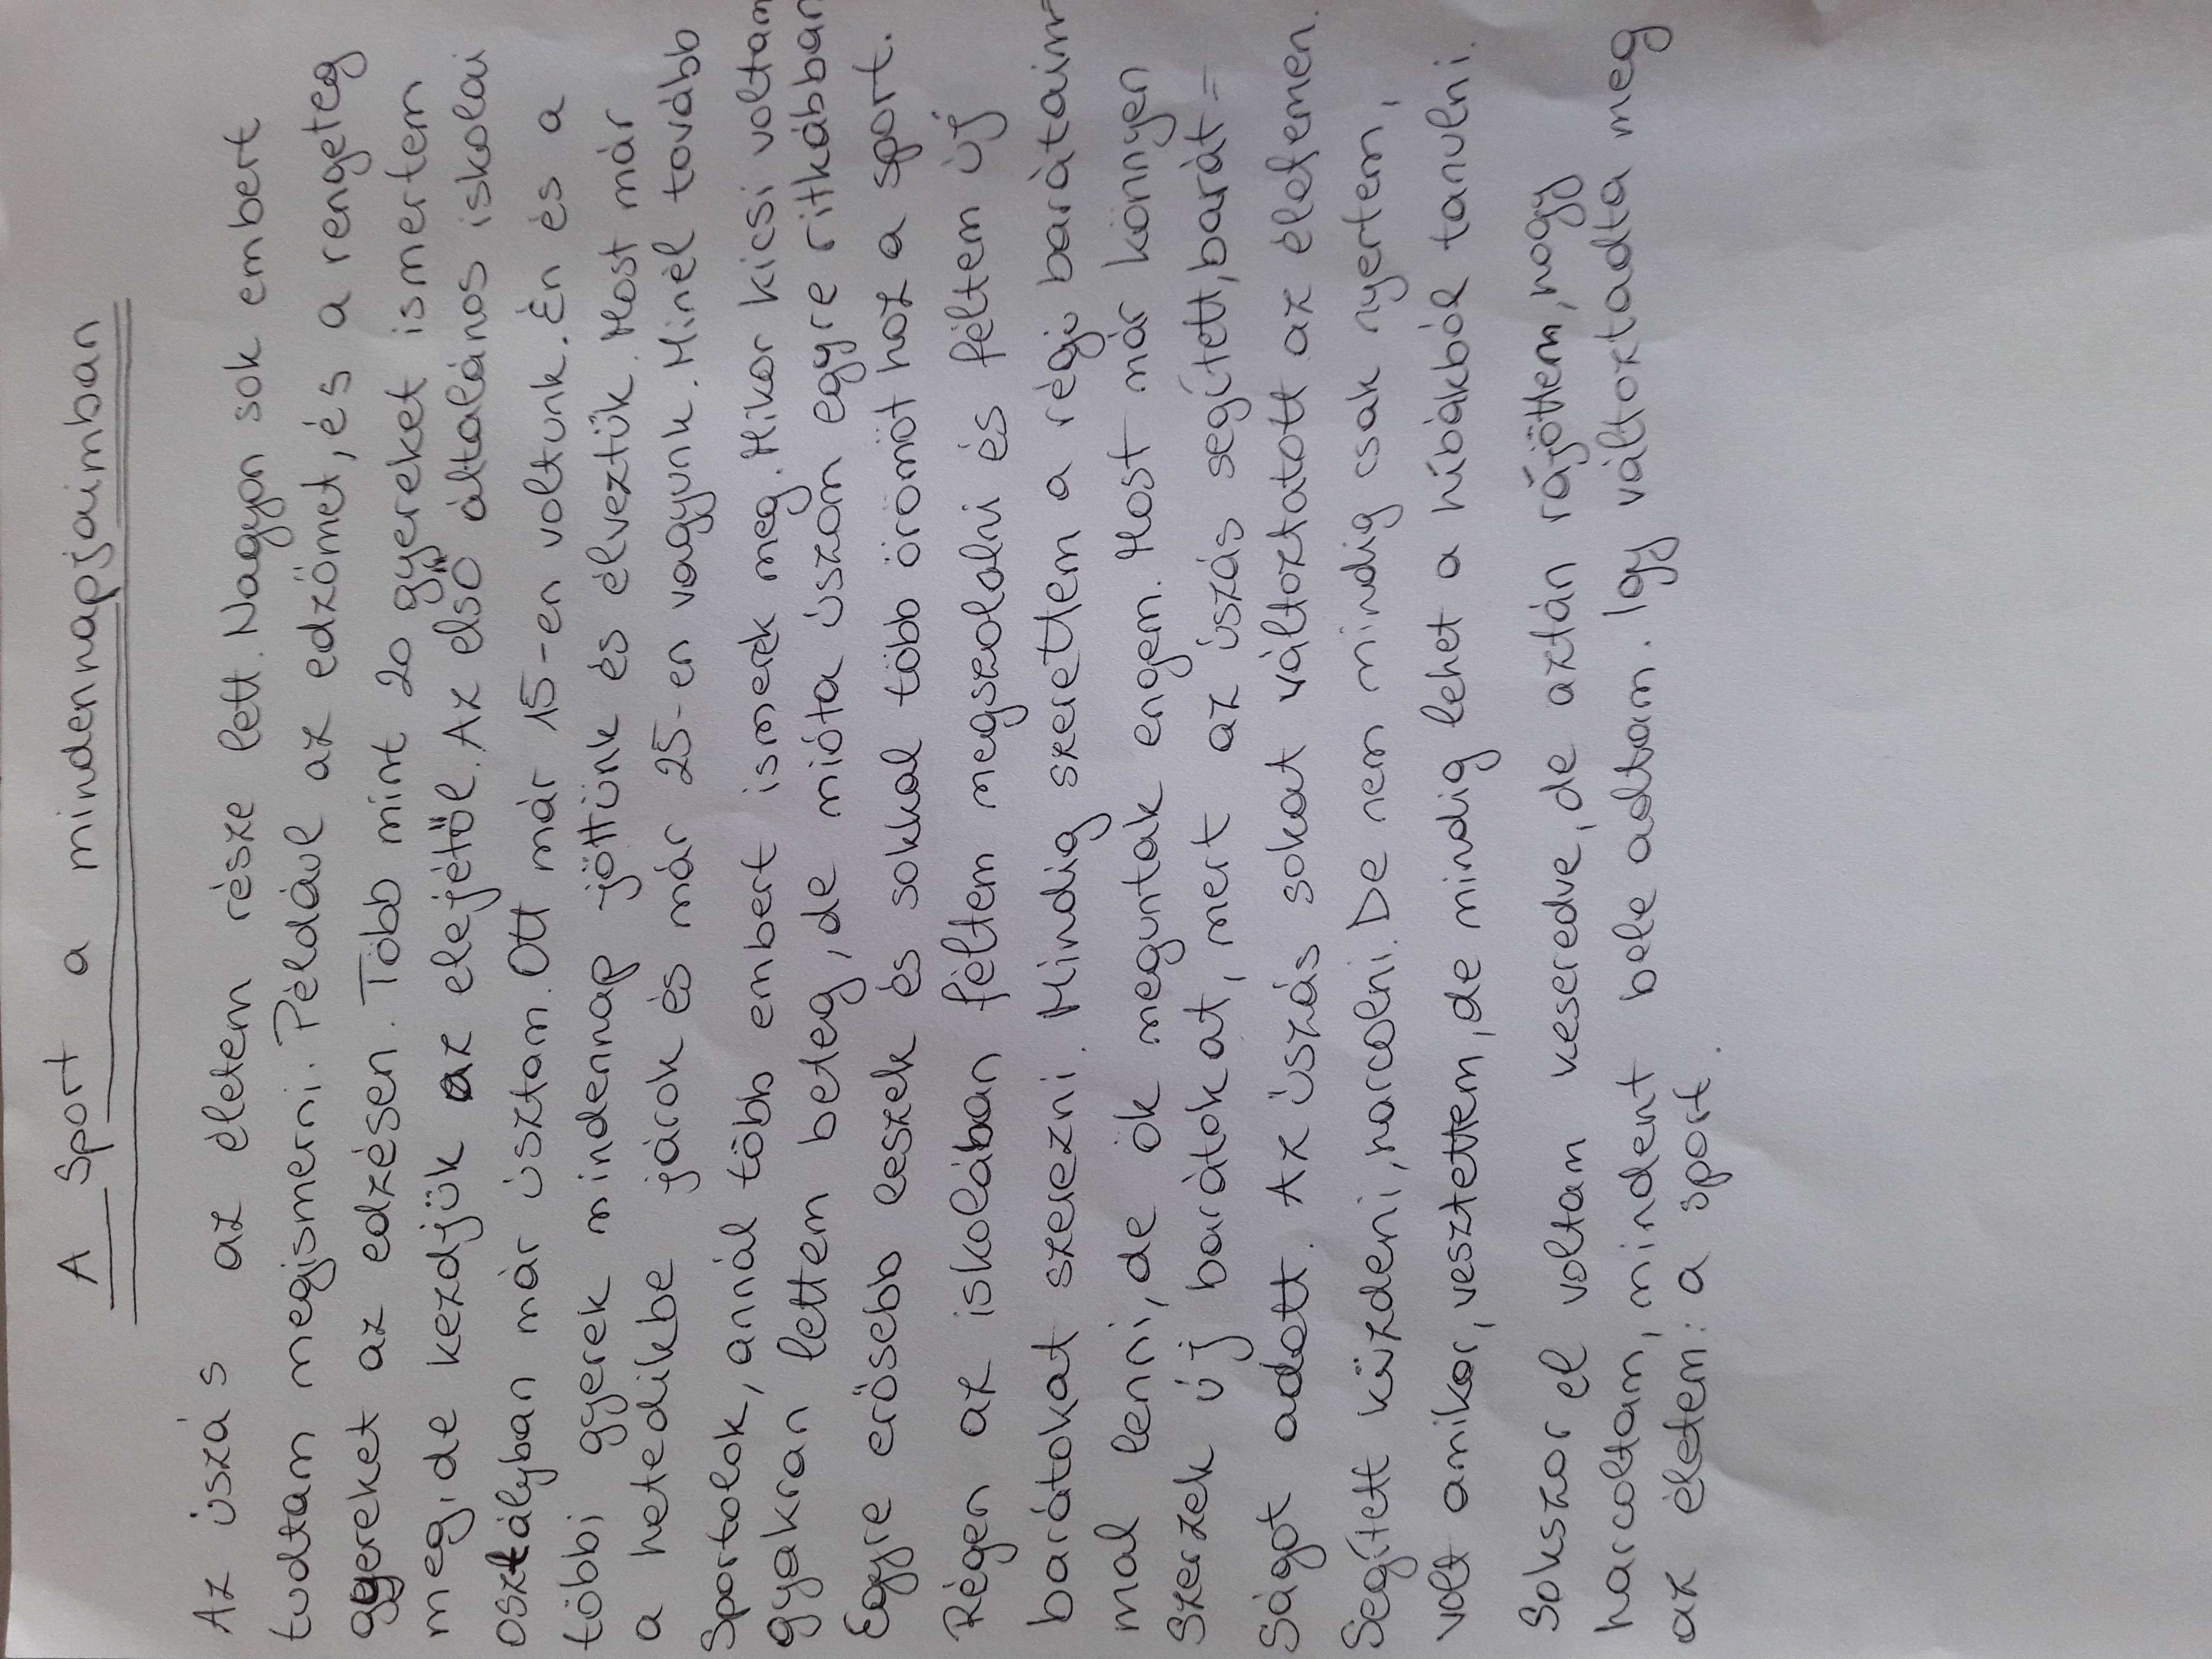 A Sport a mindennapjaimban
Az úszás az életem része lett. Nagyon sok embert
tudtam megismerni. Például az edzőmet, és a rengeteg
gyereket az edzésen. Több mint 20 gyereket ismertem
meg, de kezdjük az elejétől. Az első általános iskolai
osztályban már úsztam. Ott már 15-en voltunk. Én és a
többi gyerek mindennap jöttünk és élveztük. Most már
a hetedikbe járok és már 25-en vagyunk. Minél tovább
sportolok, annál több embert ismerek meg. Mikor kicsi voltam
gyakran lettem beteg, de mióta úszom egyre ritkábban
Egyre erősebb leszek és sokkal több örömöt hoz a sport.
Régen az iskolában féltem megszólalni és féltem új
barátokat szerezni. Mindig szerettem a régi barátaim
mal lenni, de ők meguntak engem. Most már könnyen
szerzek új barátokat, mert az úszás segített, barát=
ságot adott. Az úszás sokat változtatott az életemen.
Segített küzdeni, harcolni. De nem mindig csak nyertem,
volt amikor, vesztettem, de mindig lehet a hibákból tanulni.
Sokszor el voltam keseredve, de aztán rájöttem, hogy
harcoltam, mindent bele adtam. Igy változtadta meg
az életem: a sport.